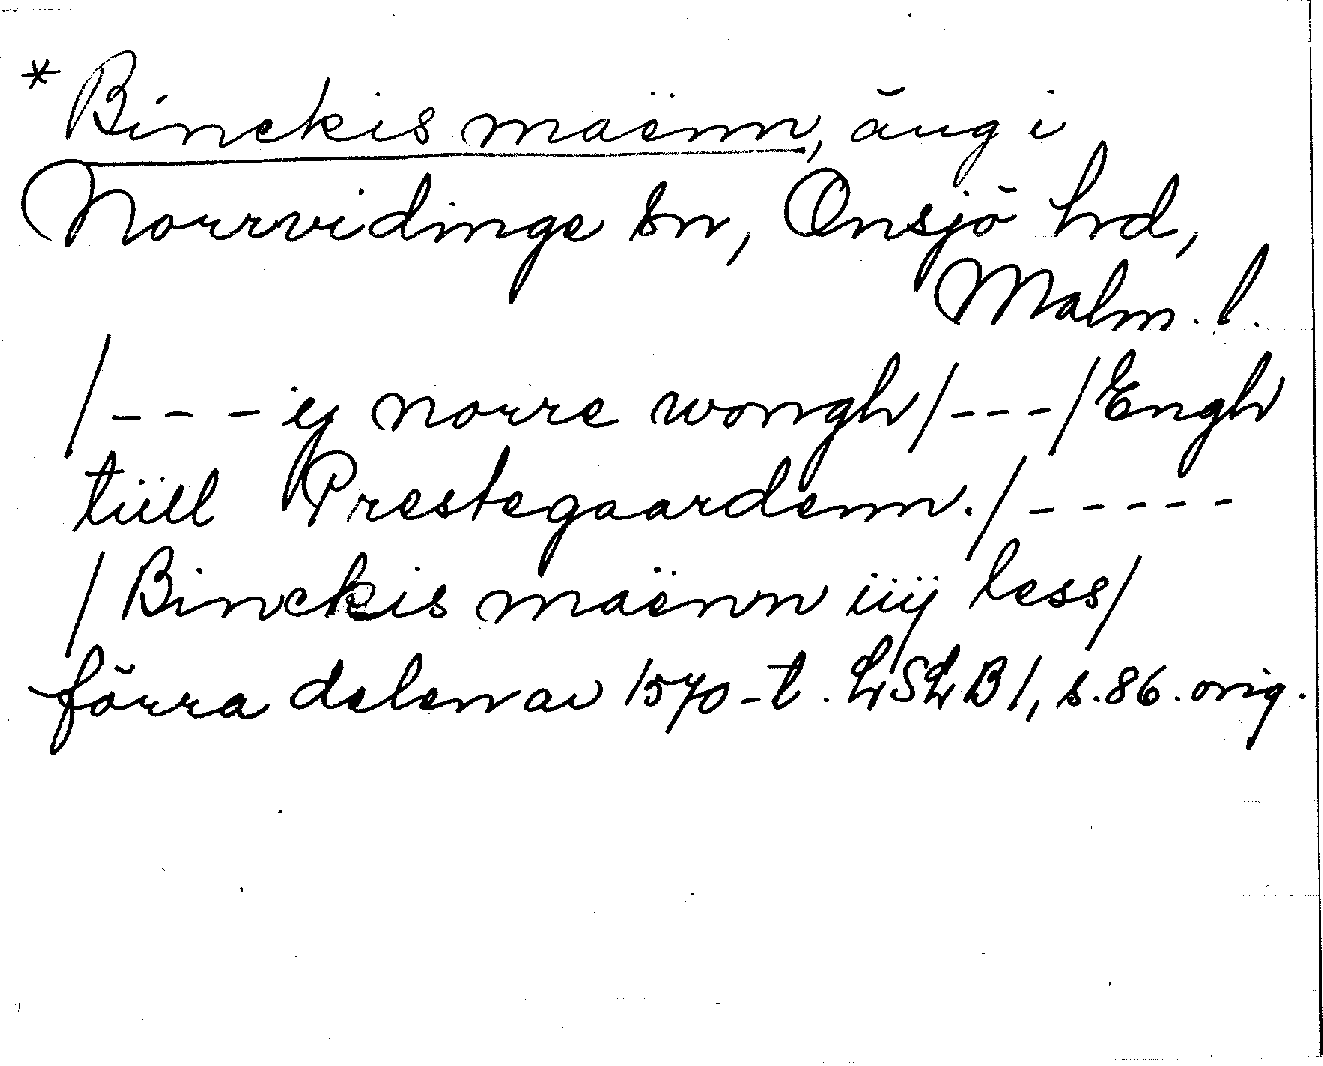 * Binckis maënn, äng i
Norrvidinge sn, Onsjö hd,
Malm. l.
/--- ij norre wongh/---/Engh
tiill Prestegaardenn./-----
/Binckis maënn iiij less/
förra delen av 1570-t. LSLB1, s.86. orig.